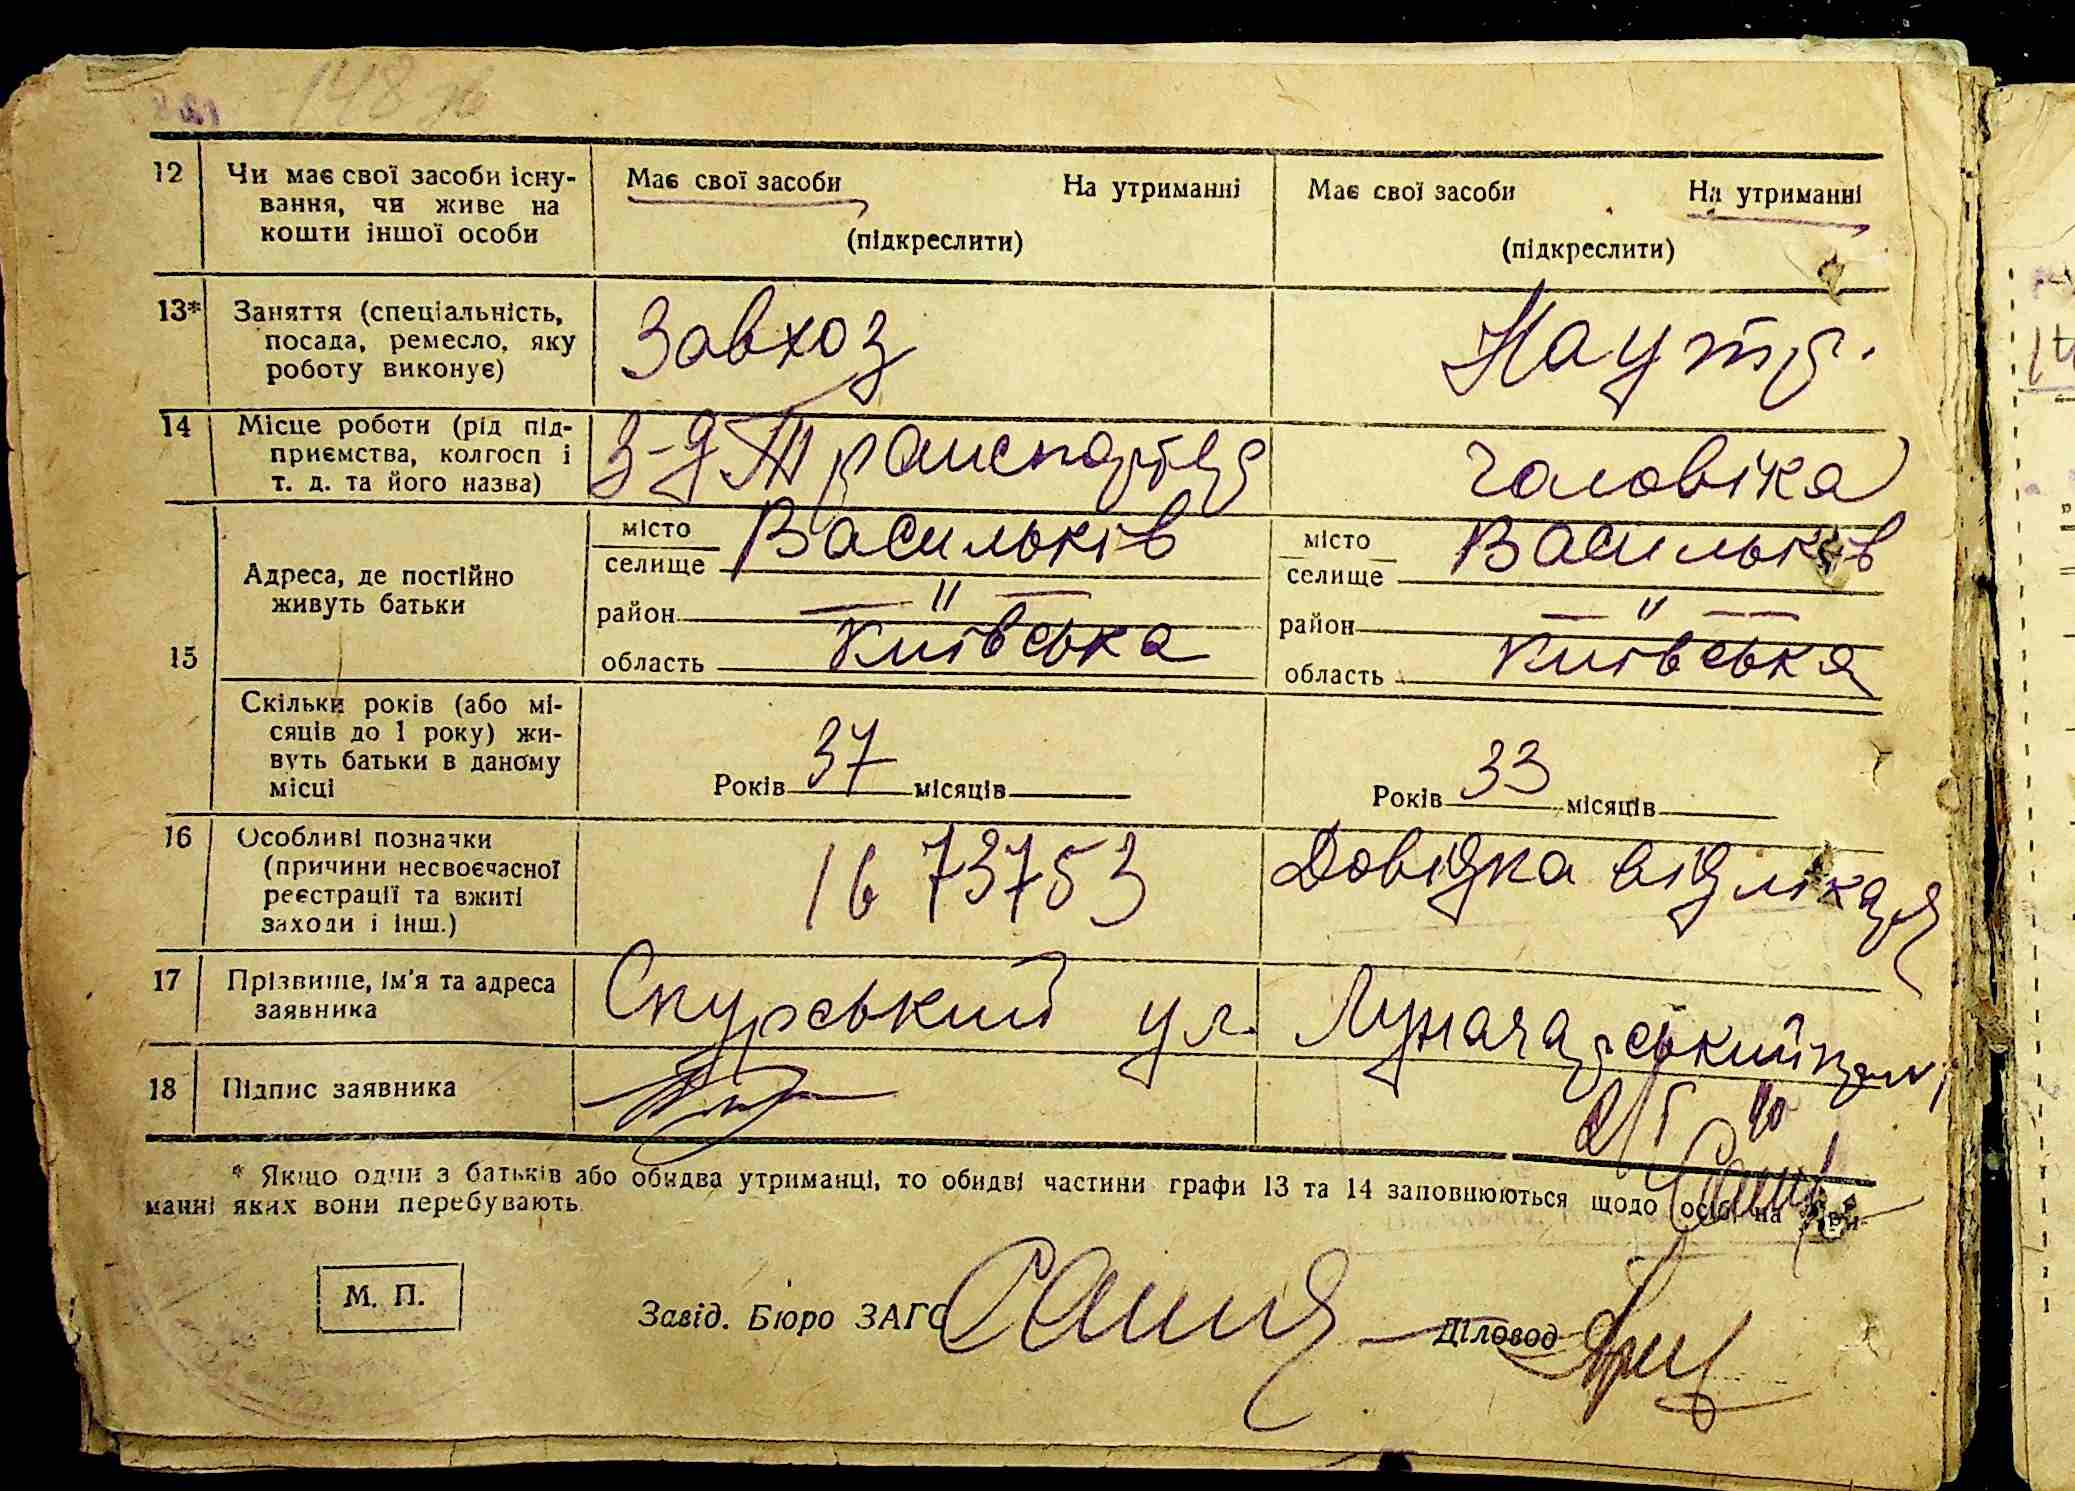 148 зв
12 Чи має свої засоби існу-
вання, чи живе на
кошти іншої особи
Має свої засоби На утриманні
(підкреслити)
Має свої засоби На утриманні
(підкреслити)
13* Заняття (спеціальність,
посада, ремесло, яку
роботу виконує)
Завхоз
На утр.
14 Місце роботи (рід під-
приємства, колгосп і
т. д. та його назва)
З-д
чоловіка
15 Адреса, де постійно
живуть батьки
місто
селище
Васильків
район — " —
область Київська
місто
селище
Васильків
район — " —
область Київська
Скільки років (або мі-
сяців до 1 року) жи-
вуть батьки в даному
місці
Років 37 місяців
Років 33 місяців
16 Особливі позначки
(причини несвоєчасної
реєстрації та вжиті
заходи і інш.)
16 73753
Довідка від лікаря
17 Прізвище, ім'я та адреса
заявника
Скурський ул. Луначарський
18 Підпис заявника
* Якщо один з батьків або обидва утриманці, то обидві частини графи 13 та 14 заповнюються щодо осіб на утри-
манні яких вони перебувають.
М. П.
Завід. Бюро ЗАГС
Діловод